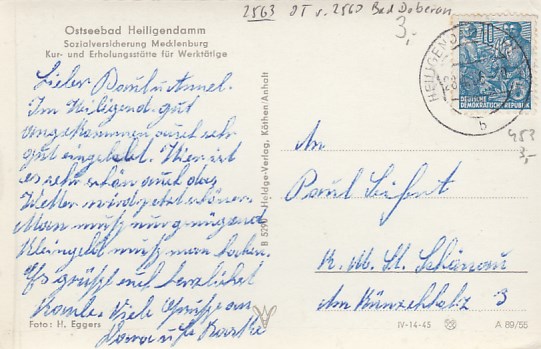 2563 OT v. 2560 Bad Doberan
3,-
Ostseebad Heiligendamm
Sozialversicherung Mecklenburg
Kur- und Erholungsstätte für Werktätige
Lieber Paul u. Annel.
Im Heiligend. gut
angekommen auch sehr
gut eingelebt. Hier ist
es sehr schön auch das
Wetter wird jetzt schöner.
Man muß nur genügend
Kleingeld muß man haben.
Es grüßt euch herzlichst
Viele Grüße an
Foto: H. Eggers
B 5290 Holdge-Verlag, Köthen/Anhalt
HEILIGEND
b
10
DEUTSCHE
DEMOKRATISCHE REPUBLIK
453
3,-
An
Paul Seifert
K. M. St. Schönau
Am 3
IV-14-45 A 89/55